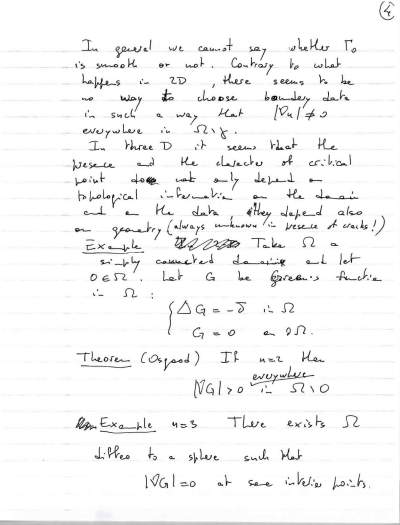 4
In general we cannot say whether Γ₀
is smooth or not. Contrary to what
happens in 2D, there seems to be
no way to choose boundary data
in such a way that |∇u| ≠ 0
everywhere in Ω\γ.
In three D it seems that the
presence and the character of critical
point do not only depend on
topological information on the domain
and on the data they depend also
on geometry (always unknown in presence of cracks!)
Example Take Ω a
simply connected domain and let
0∈Ω. Let G be Green's function
in Ω :
{ ΔG = -δ in Ω
G = 0 on ∂Ω.
Theorem (Osgood) If n=2 then
|∇G|>0 everywhere in Ω\0
Example n=3 There exists Ω
diffeo to a sphere such that
|∇G|=0 at some interior points.